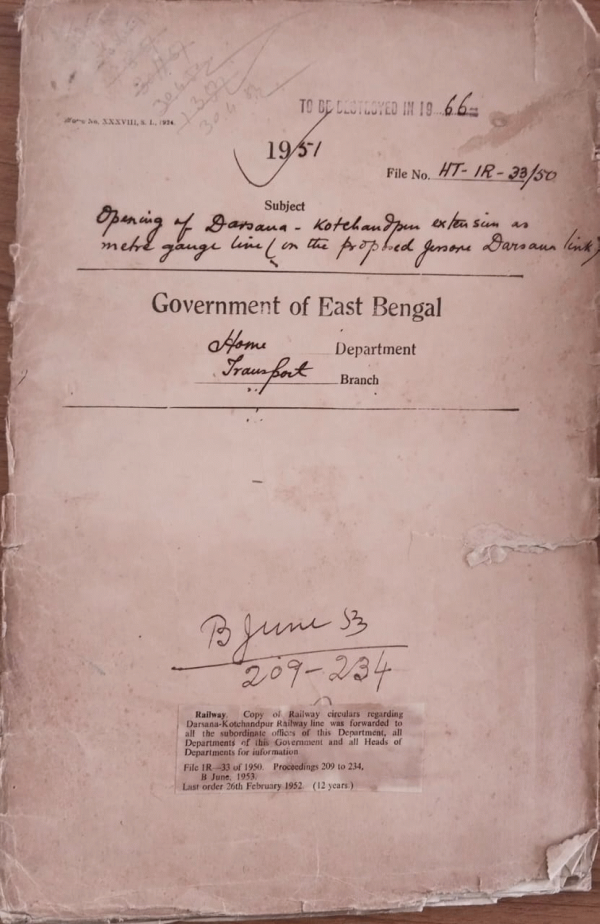 TO BE DESTROYED IN 19 66
1951
File No. HT-1R-33/50
Subject
Opening of Darsana - Kotchandpur extension as
metre gauge line (in the proposed Jessore Darsana link)
Government of East Bengal
Home Department
Transport Branch
B June 53
209-234
Railway. Copy of Railway circulars regarding
Darsana-Kotchandpur Railway line was forwarded to
all the subordinate offices of this Department, all
Departments of this Government and all Heads of
Departments for information
File 1R-33 of 1950. Proceedings 209 to 234,
B June, 1953.
Last order 26th February 1952. (12 years.)